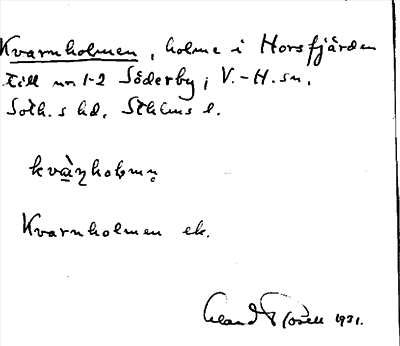 Kvarnholmen, holme i Horsfjärden
till nr 1-2 Söderby i V.-H. sn.
Soth.s hd. Sthlms l.
kvàɳholmn̥
Kvarnholmen ek.
1931.